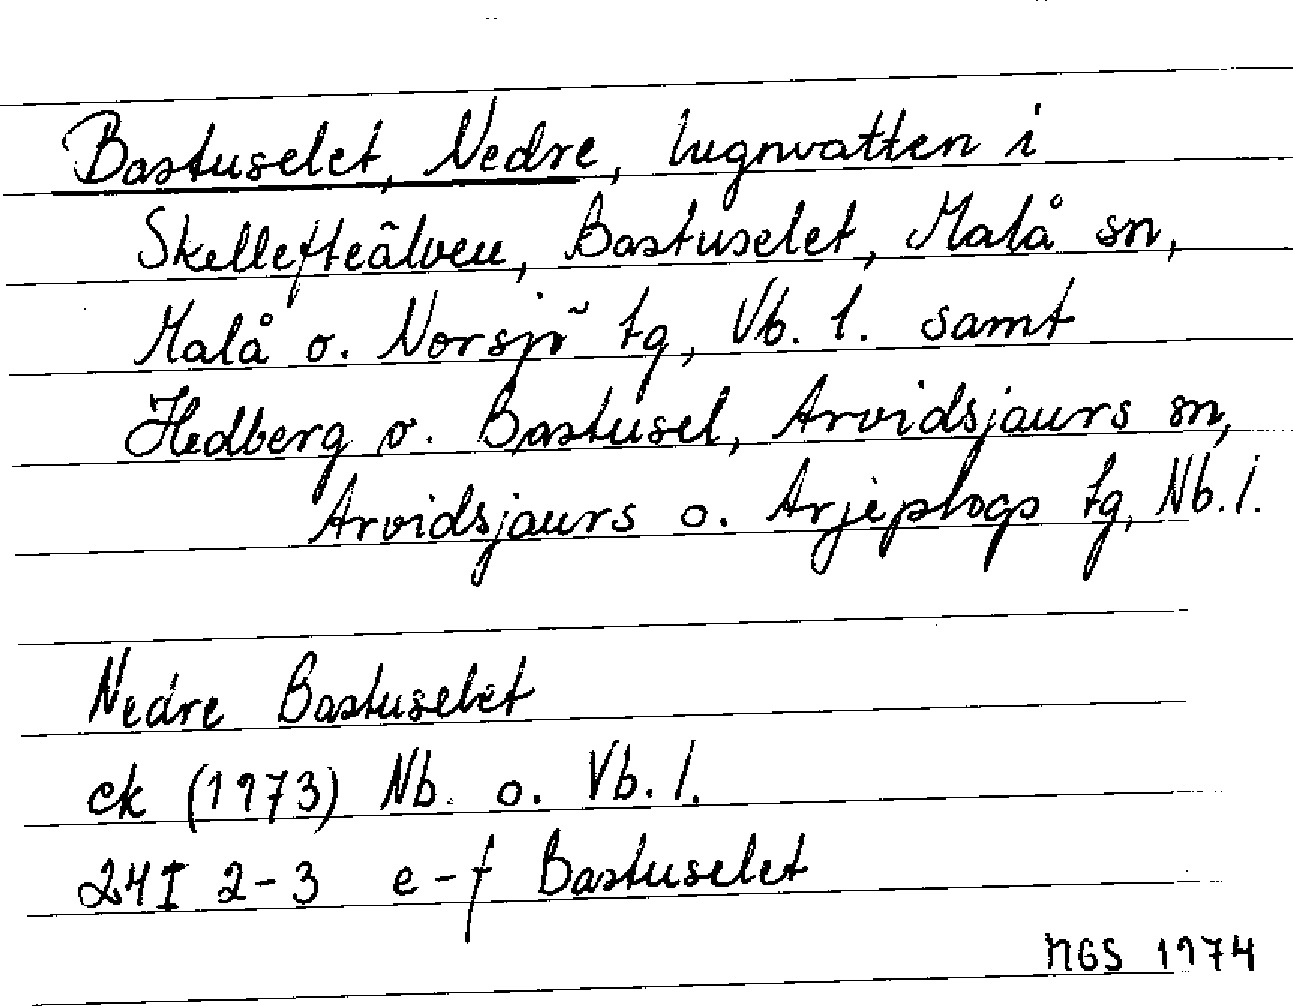 Bastuselet, Nedre, lugnvatten i
Skellefteälven, Bastuselet, Malå sn,
Malå o. Norsjö tg, Vb. l. samt
Hedberg o. Bastusel, Arvidsjaurs sn,
Arvidsjaurs o. Arjeplogs tg, Nb. l.
Nedre Bastuselet
ek (1973) Nb. o. Vb. l.
24I 2-3 e-f Bastuselet
MGS 1974